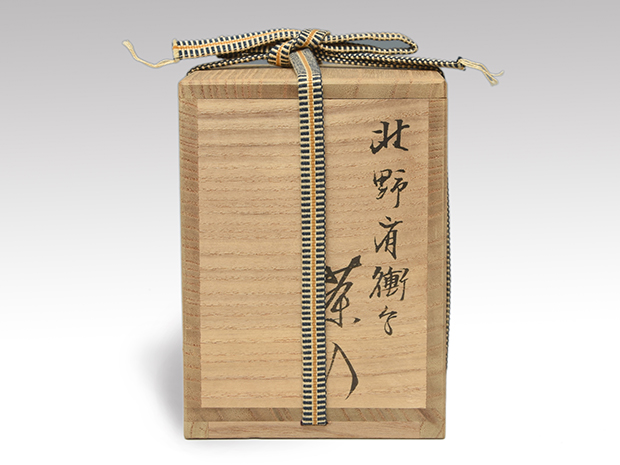 北野肩衝
茶入